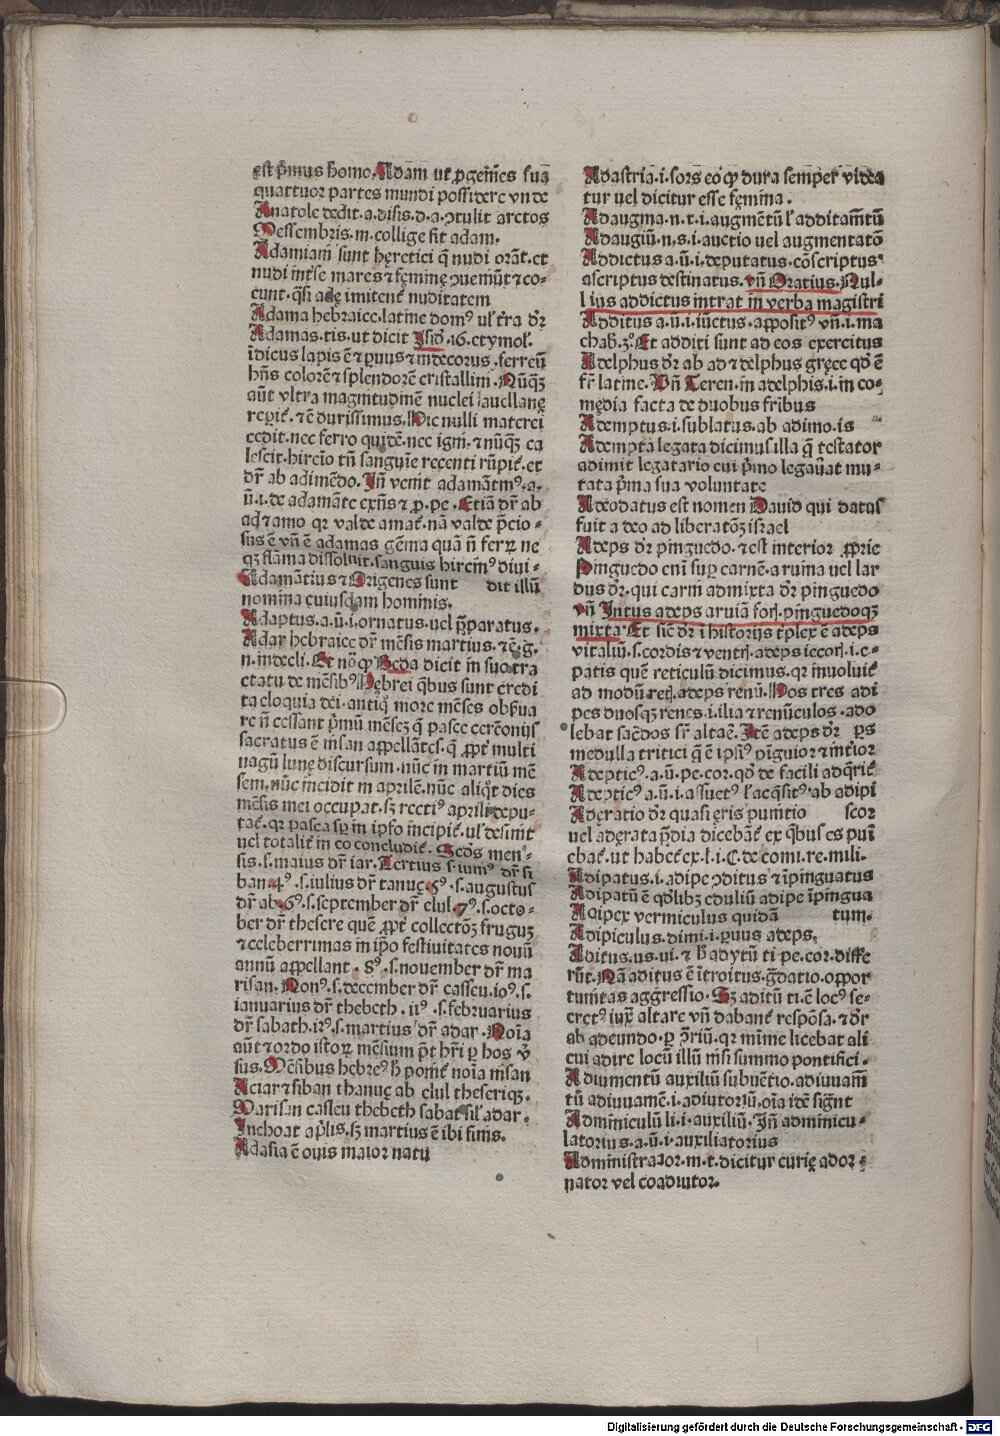 est p̄mus homo. Adam ut ꝓgenīes sua
quattuor partes mundi possidere vnde
Anatole dedit.a.disis.d.a.ɔtulit arctos
Messembris.m.collige fit adam.
Adamiani sunt hęretici q̄ nudi orāt.et
nudi int̄se mares ⁊ feminę ɔueniūt ⁊ co⸗
eunt.q̄si adę imitent᷑ nuditatem
Adama hebraice.latine domꝰ ul̓ t̄ra d̄r
Adamas.tis.ut dicit Isid̓.16.etymol̓.
īdicus lapis ē ⁊ ꝑuus ⁊ indecorus.ferreū
hn̄s colorē ⁊ splendorē cristallini.Nūqꝫ
aūt vltra magnitudinē nuclei auellanę
reꝑit᷑.⁊ ē durissimus.Hic nulli materei
cedit.nec ferro quidē.nec igni.⁊ nūqꝫ ca
lescit.hircio tn̄ sanguīe recenti rūpit᷑.et
d̄r ab adimēdo.Iñ venit adamātinꝰ.a.
ū.i.de adamāte exn̄s ⁊ ꝓ.pe.Etiā d̄r ab
ad ⁊ amo qꝛ valde amat᷑.nā valde p̄cio⸗
sus ē vñ ē adamas gēma quā ñ ferꝝ ne
qꝫ flāma dissoluit.sanguis hircinꝰ diui⸗
Adamātius ⁊ Origenes sunt dit illū
nomina cuiusdam hominis.
Adaptus.a.ū.i.ornatus.uel p̄paratus.
Adar hebraice d̄r mēsis martius.⁊ ē.g.
n.indecli.Et nō ꝙ Beda dicit in suo tra
ctatu de mēsibꝰ Hębrei q̄bus sunt credi
ta eloquia dei.antiq̄ more mēses obs̄ua
re ñ cessant p̄mū mēseꝫ q̄ pasce cerēonijs
sacratus ē nisan appellātes.q̄ ꝓpt̓ multi
uagū lunę discursum.nūc in martiū mē
sem.nūc incidit in aprilē.nūc aliq̄t dies
mēsis mei occupat.sꝫ rectiꝰ aprili depu⸗
tat᷑.qꝛ pasca sꝑ in ipso incipit᷑.ul̓ desinit
uel totalit᷑ in eo concludit᷑.Secd̄s men⸗
sis.s.maius d̄r iar.Tertius s.iunꝰ d̄r si
ban.4ꝰ.s.iulius d̄r tanuę.5ꝰ.s.augustus
d̄r ab.6ꝰ.s.september d̄r elul.7ꝰ.s.octo⸗
ber d̄r thesere quē ꝓpt̓ collectōꝫ fruguꝫ
⁊ celeberrimas in ip̄o festiuitates nouū
annū appellant.8ꝰ.s.nouember d̄r ma
risan.Nonꝰ.s.december d̄r casleu.10ꝰ.s.
ianuarius d̄r thebeth.11ꝰ.s.februarius
d̄r sabath.12ꝰ.s.martius d̄r adar.Noīa
aūt ⁊ ordo istoꝝ mēsium p̄t hr̄i ꝑ hos v̓
sus.Mēsibus hebręꝰ h̄ ponit᷑ noīa nisan
Aciar ⁊ siban thanuę ab elul theseriqꝫ.
Marisan casleu thebeth sabat sil̓ adar.
Inchoat ap̄lis.sꝫ martius ē ibi finis.
Adasia ē ouis maior natu
Adastria.i.sors eo ꝙ dura semper videa
tur uel dicitur esse fęmina.
Adaugma.n.t.i.augmētū l̓ additam̄tū
Adaugiū.n.s.i.auctio uel augmentatō
Addictus a.ū.i.deputatus.cōscriptus
ascriptus destinatus.vñ Oratius.Nul⸗
lius addictus intrat in verba magistri
Additus a.ū.i.iūctus.appositꝰ vñ.i.ma
chab.3ꝰ.Et additi sunt ad eos exercitus
Adelphus d̄r ab ad ⁊ delphus gręce qd̓ ē
fr̄ latine.Vñ Teren.in adelphis.i.in co⸗
mędia facta de duobus fribus
Ademptus.i.sublatus.ab adimo.is
Adempta legata dicimus illa q̄ testator
adimit legatario cui p̄mo legauat mu⸗
tata p̄ma sua voluntate
Adeodatus est nomen Dauid qui datus
fuit a deo ad liberatōꝫ israel
Adeps d̄r pinguedo.⁊ est interior ꝓprie
Pinguedo enī suꝑ carnē.aruina uel lar
dus d̄r.qui carni admixta d̄r pinguedo
vñ Intus adeps aruiā fori.pinguedoqꝫ
mixta.Et sic d̄r ī historijs tplex ē adeps
vitaliū.s.cordis ⁊ ventris.adeps iecoris.i.e⸗
patis quē reticulū dicimus.qꝛ inuoluit᷑
ad modū retis.adeps renū.Hos tres adi
pes duosqꝫ renes.i.ilia ⁊ renūculos.ado
lebat sac̄dos sr̄ altaē.Itē adeps d̄r ps
medulla tritici q̄ ē ipsiꝰ pīguior ⁊ int̓ior
Adepticꝰ.a.ū.pe.cor.qd̓ de facili adq̄rit᷑
Adepticꝰ a.ū.i.assuetꝰ l̓ acq̄sitꝰ.ab adipi
Adęratio d̄r quasi ęris punitio scor
uel adęrata p̄dia dicebāt᷑ ex q̄bus es puī
ebat᷑.ut habet᷑ ex.l.i.C.de comi.re.mili.
Adipatus.i.adipe ɔditus ⁊ īpinguatus
Adipatū ē qd̓libꝫ eduliū adipe īpingua
Adipex vermiculus quidā tum.
Adipiculus.dimi.i.ꝑuus adeps.
Aditus.us.ui.⁊ h̄ adytū ti.pe.cor.diffe
rūt.Nā aditus ē ītroitus.ḡdatio.oppor
tunitas aggressio.Sꝫ aditū ti.ē locꝰ se⸗
cretꝰ iuxᵃ altare vñ dabant᷑ respōsa.⁊ d̄r
ab adeundo.ꝑ p̄riū.qꝛ minime licebat ali
cui adire locū illū nisi summo pontifici.
Adiumentū auxiliū subuētio.adiuuam̄
tū adiuuamē.i.adiutoriū.oīa idē sign̄t
Adminiculū li.i.auxiliū.Iñ adminicu⸗
latorius.a.ū.i.auxiliatorius
Administrator.m.t.dicitur curię ador⸗
nator vel coadiutor.
Digitalisierung gefördert durch die Deutsche Forschungsgemeinschaft - DFG